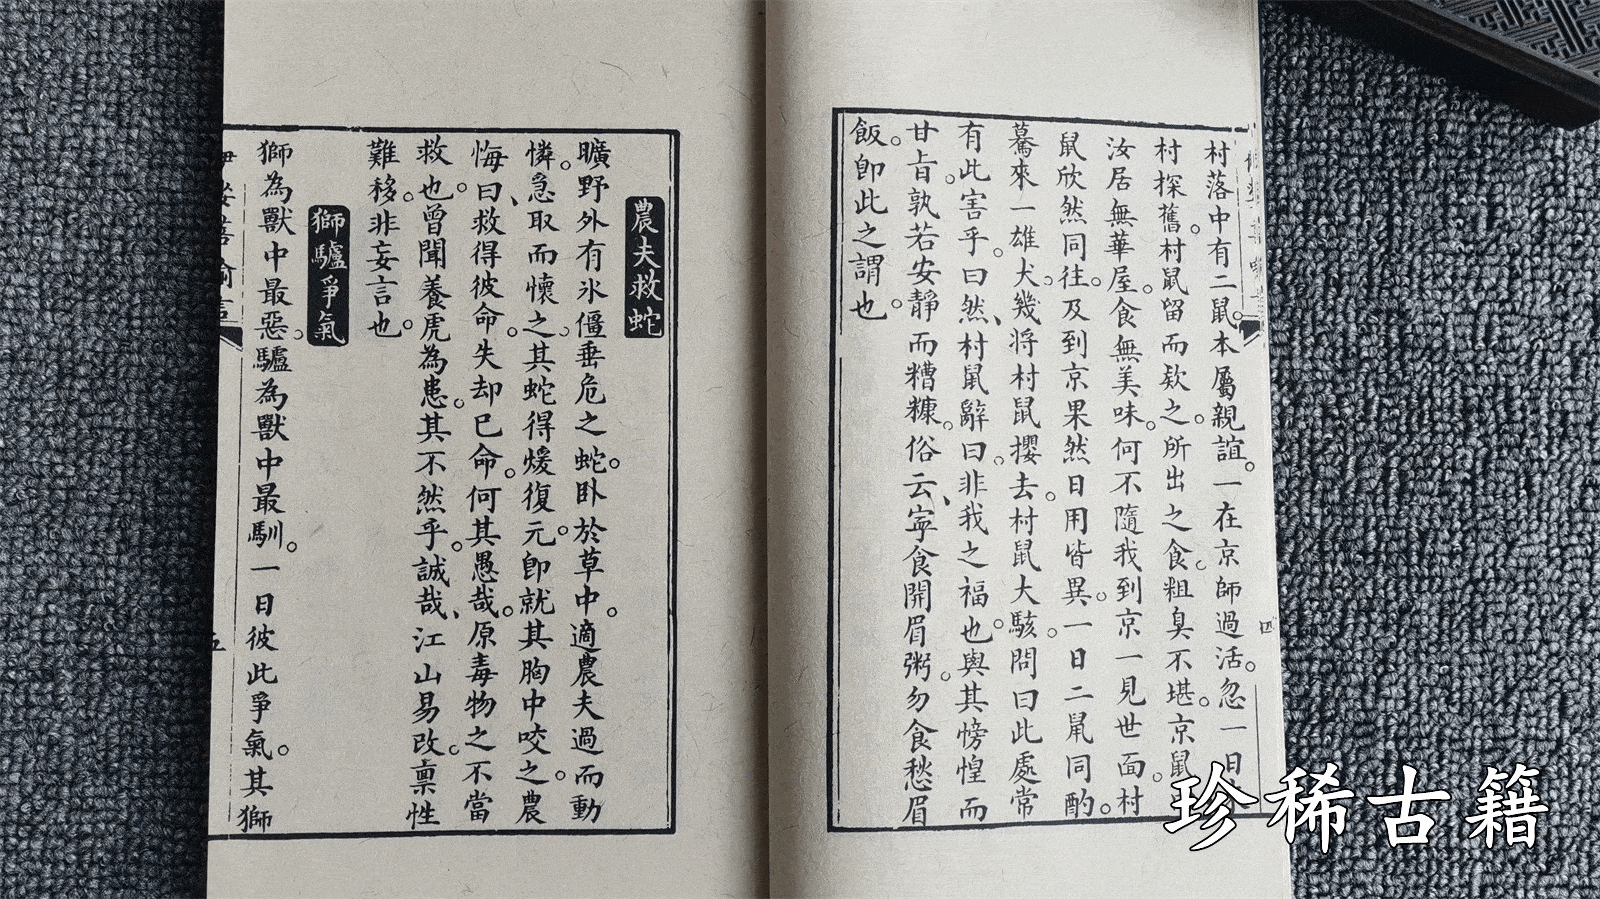 村落中有二鼠。本屬親誼。一在京師過活。忽一日
村探舊。村鼠留而欵之。所出之食。粗臭不堪。京鼠
汝居無華屋。食無美味。何不隨我到京一見世面。村
鼠欣然同往。及到京果然日用皆異。一日二鼠同酌。
驀來一雄犬。幾將村鼠攫去。村鼠大駭。問曰此處常
有此害乎。曰然、村鼠辭曰。非我之福也。與其愴惶而
甘旨。孰若安靜。而糟糠。俗云、寧食開眉粥。勿食愁眉
飯。即此之謂也。
四
農夫救蛇
曠野外有氷僵垂危之蛇。卧於草中。適農夫過而動
憐。急取而懷之。其蛇得煖復元。即就其胸中咬之。農
悔曰、救得彼命。失却己命。何其愚哉。原毒物之不當
救也。曾聞養虎為患。其不然乎。誠哉、江山易改。禀性
難移。非妄言也。
獅驢爭氣
獅為獸中最惡。驢為獸中最馴。一日彼此爭氣。其獅
五
珍稀古籍